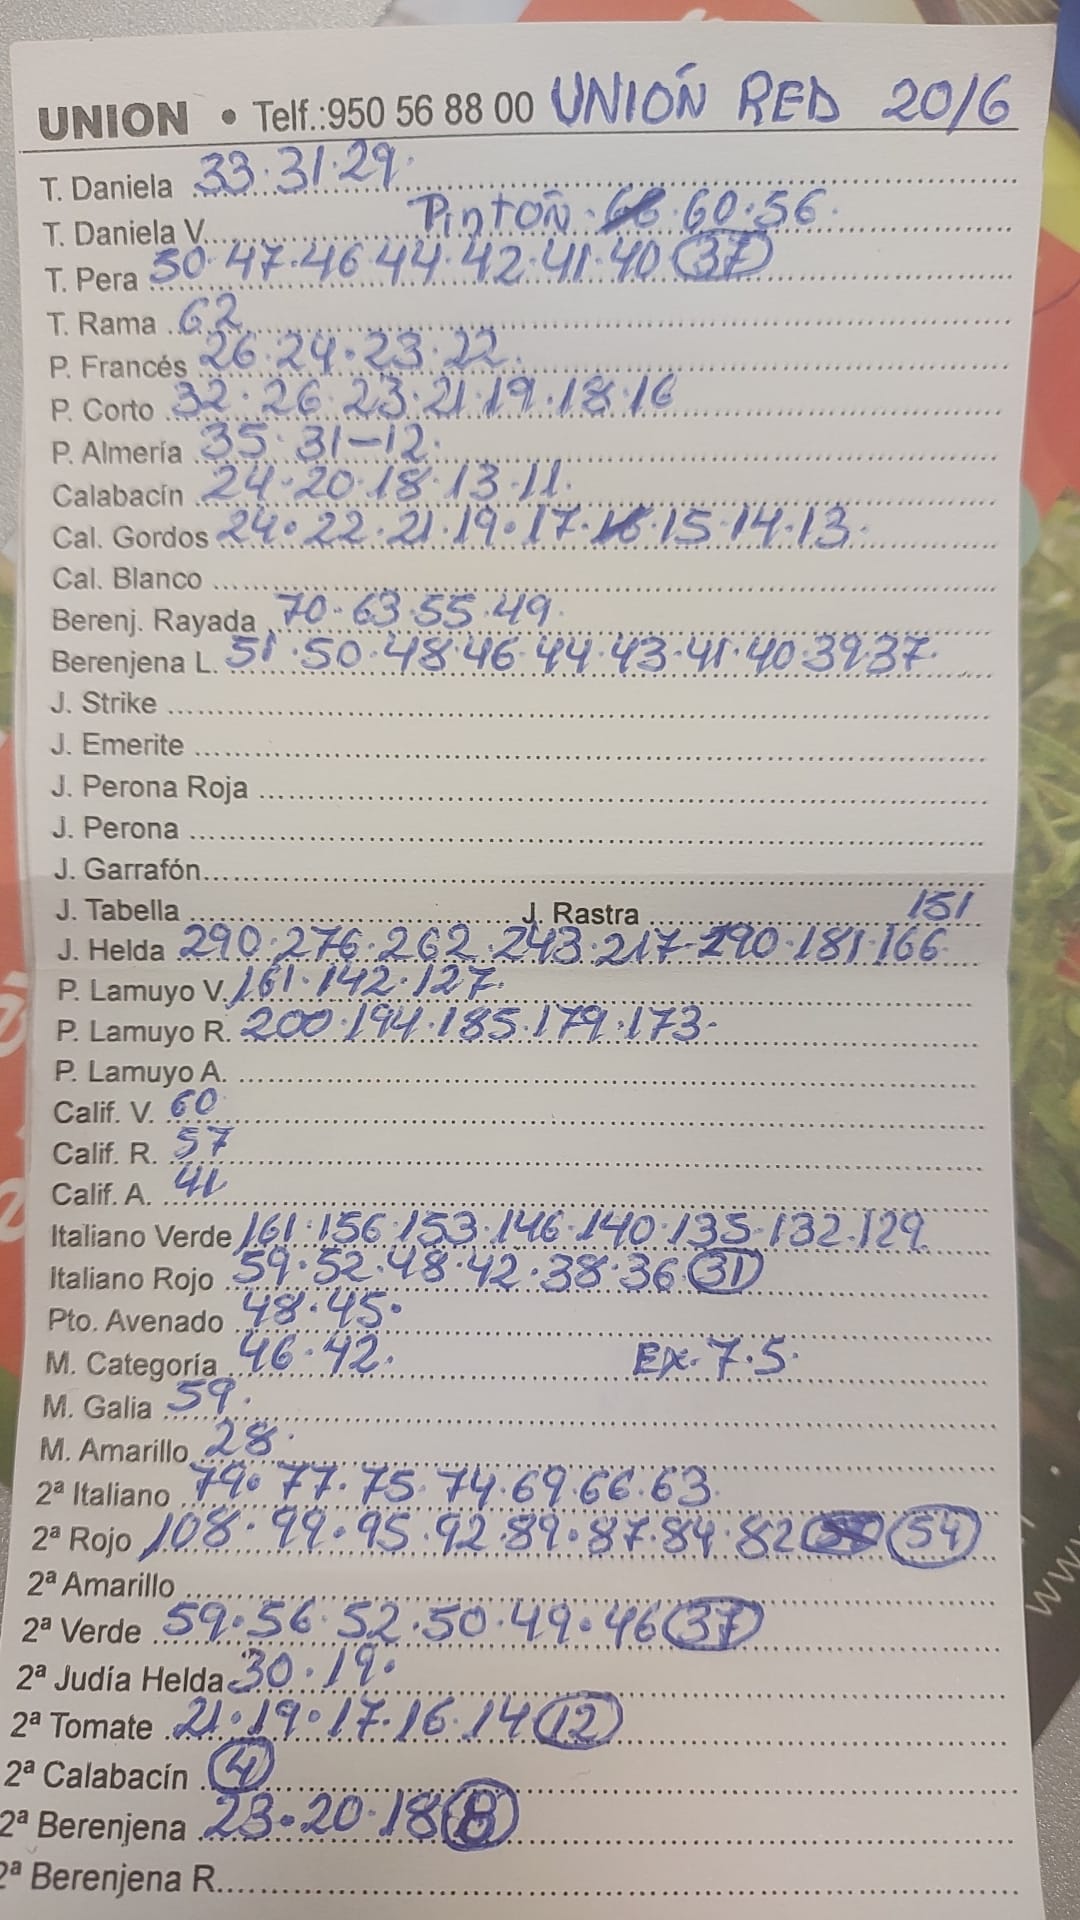 UNION • Telf.:950 56 88 00 UNIÓN RED 20/6
T. Daniela 33·31·29·
T. Daniela V. PINTÓN · 60·56·
T. Pera 50·47·46·44·42·41·40 (37)
T. Rama 62
P. Francés 26·24·23·22·
P. Corto 32·26·23·21·19·18·16
P. Almería 35·31-12·
Calabacín 24·20·18·13·11·
Cal. Gordos 24·22·21·19·17·16·15·14·13·
Cal. Blanco
Berenj. Rayada 70·63·55·49·
Berenjena L. 51·50·48·46·44·43·41·40·39·37·
J. Strike
J. Emerite
J. Perona Roja
J. Perona
J. Garrafón
J. Tabella J. Rastra 151
J. Helda 290·276·262·243·217·190·181·166·
P. Lamuyo V. 161·142·127·
P. Lamuyo R. 200·194·185·179·173·
P. Lamuyo A.
Calif. V. 60
Calif. R. 57
Calif. A. 41
Italiano Verde 161·156·153·146·140·135·132·129
Italiano Rojo 59·52·48·42·38·36 (31)
Pto. Avenado 48·45·
M. Categoría 46·42· EX·7·5·
M. Galia 59·
M. Amarillo 28·
2ª Italiano 79·77·75·74·69·66·63·
2ª Rojo 108·99·95·92·89·87·84·82 (54)
2ª Amarillo
2ª Verde 59·56·52·50·49·46 (37)
2ª Judía Helda 30·19·
2ª Tomate 21·19·17·16·14 (12)
2ª Calabacín (4)
2ª Berenjena 23·20·18
2ª Berenjena R.